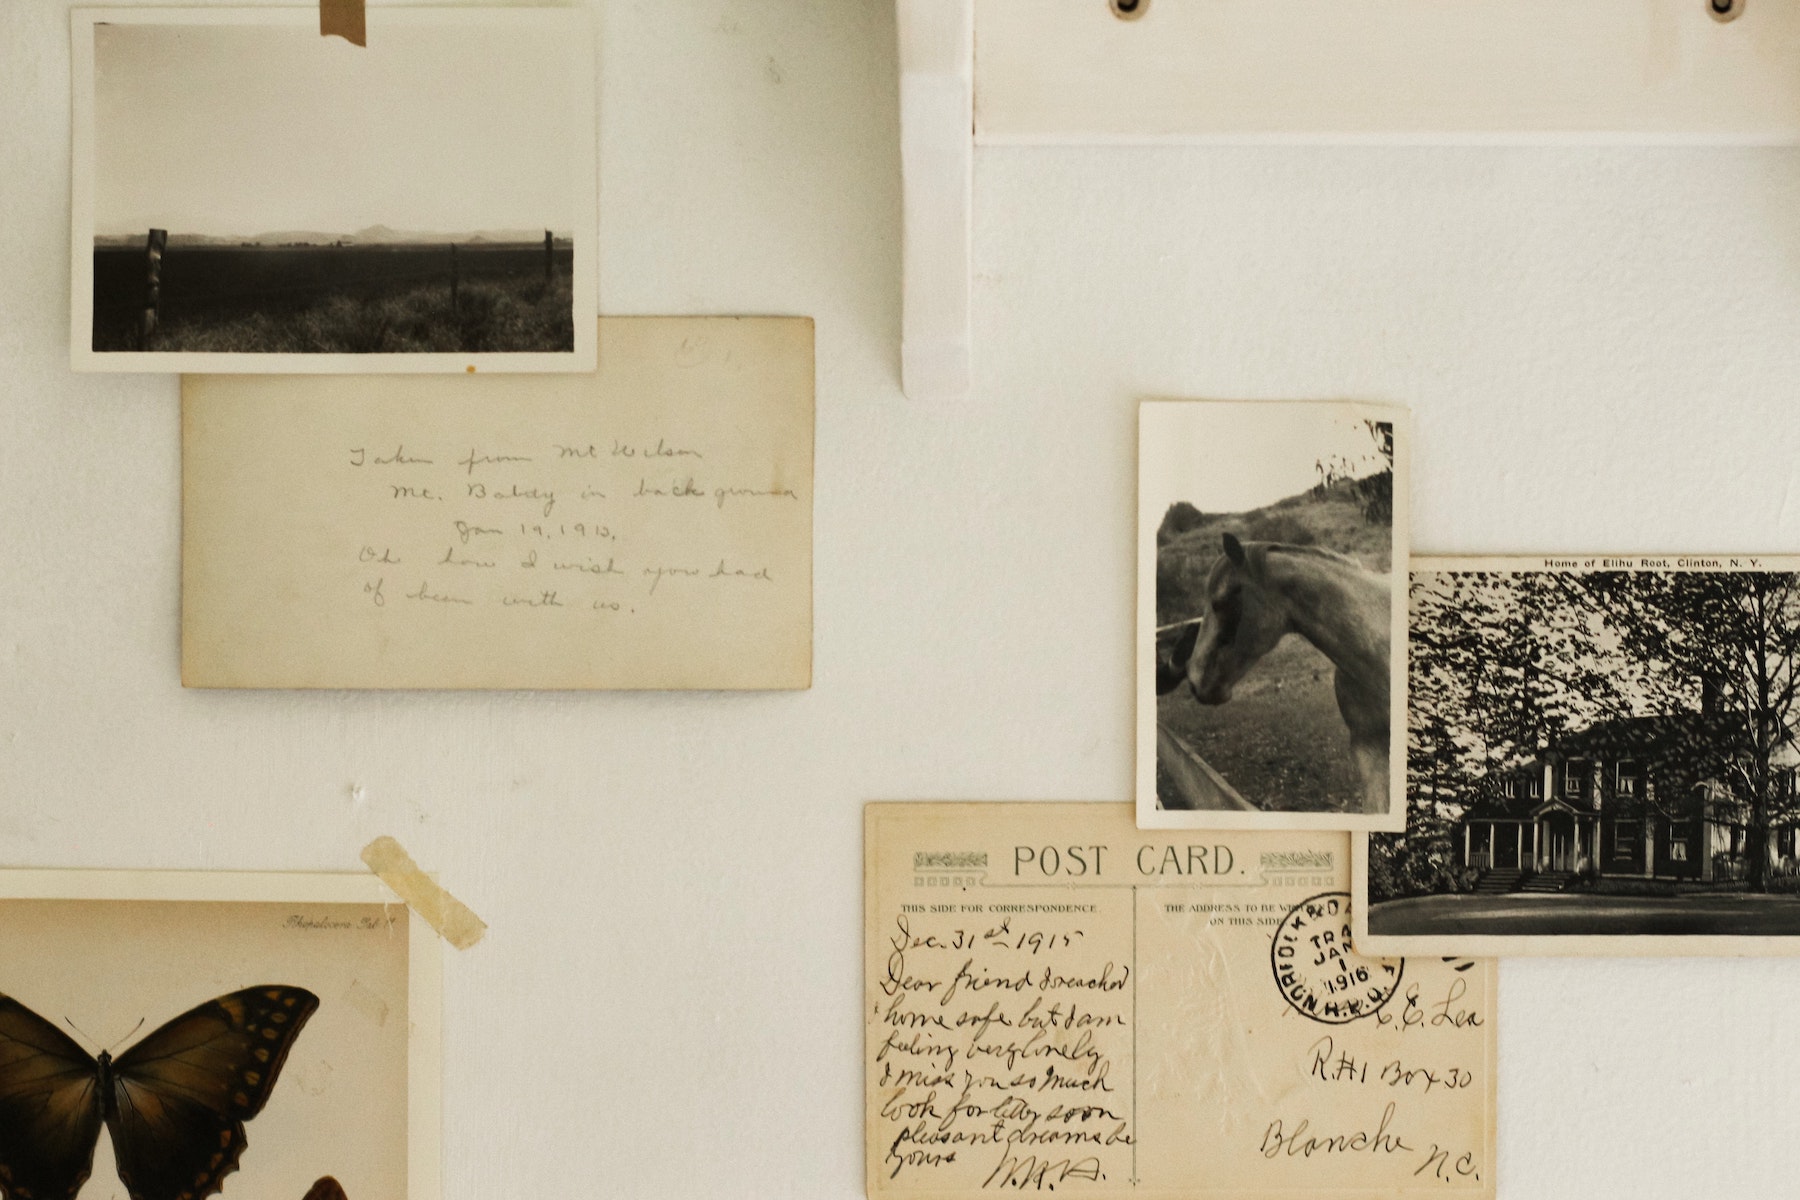 Taken from Mt Wilson
Mt. Baldy in back ground
Jan 19, 1913.
Oh how I wish you had
of been with us.
Home of Elihu Root, Clinton, N. Y.
POST CARD.
THIS SIDE FOR CORRESPONDENCE.
THE ADDRESS TO BE
ON THIS SIDE
Dec. 31st 1915
Dear friend I reached
home safe but I am
feeling very lonely
I miss you so much
look for letter soon
pleasant dreams be
yours
NORFOLK &
TRA
JAN
1
1916
R.P.O.
C.E. Lea
R.#1 Box 30
Blanche
N.C.